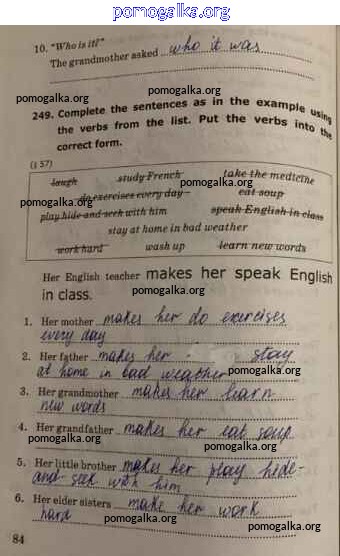 pomogalka.org
10. "Who is it?"
The grandmother asked who it was
pomogalka.org
pomogalka.org
249. Complete the sentences as in the example using
the verbs from the list. Put the verbs into the
correct form.
pomogalka.org
(§ 57)
laugh study French take the medicine
pomogalka.org
do exercises every day eat soup
pomogalka.org
play hide-and-seek with him speak English in class
pomogalka.org
stay at home in bad weather
work hard wash up learn new words
pomogalka.org
Her English teacher makes her speak English
in class.
pomogalka.org
pomogalka.org
1. Her mother makes her do exercises
every day
2. Her father makes her stay
at home in bad weather
pomogalka.org
3. Her grandmother makes her learn
new words
pomogalka.org
4. Her grandfather makes her eat soup
pomogalka.org
pomogalka.org
5. Her little brother makes her play hide-
and-seek with him
pomogalka.org
6. Her elder sisters make her work
hard
pomogalka.org
84
pomogalka.org